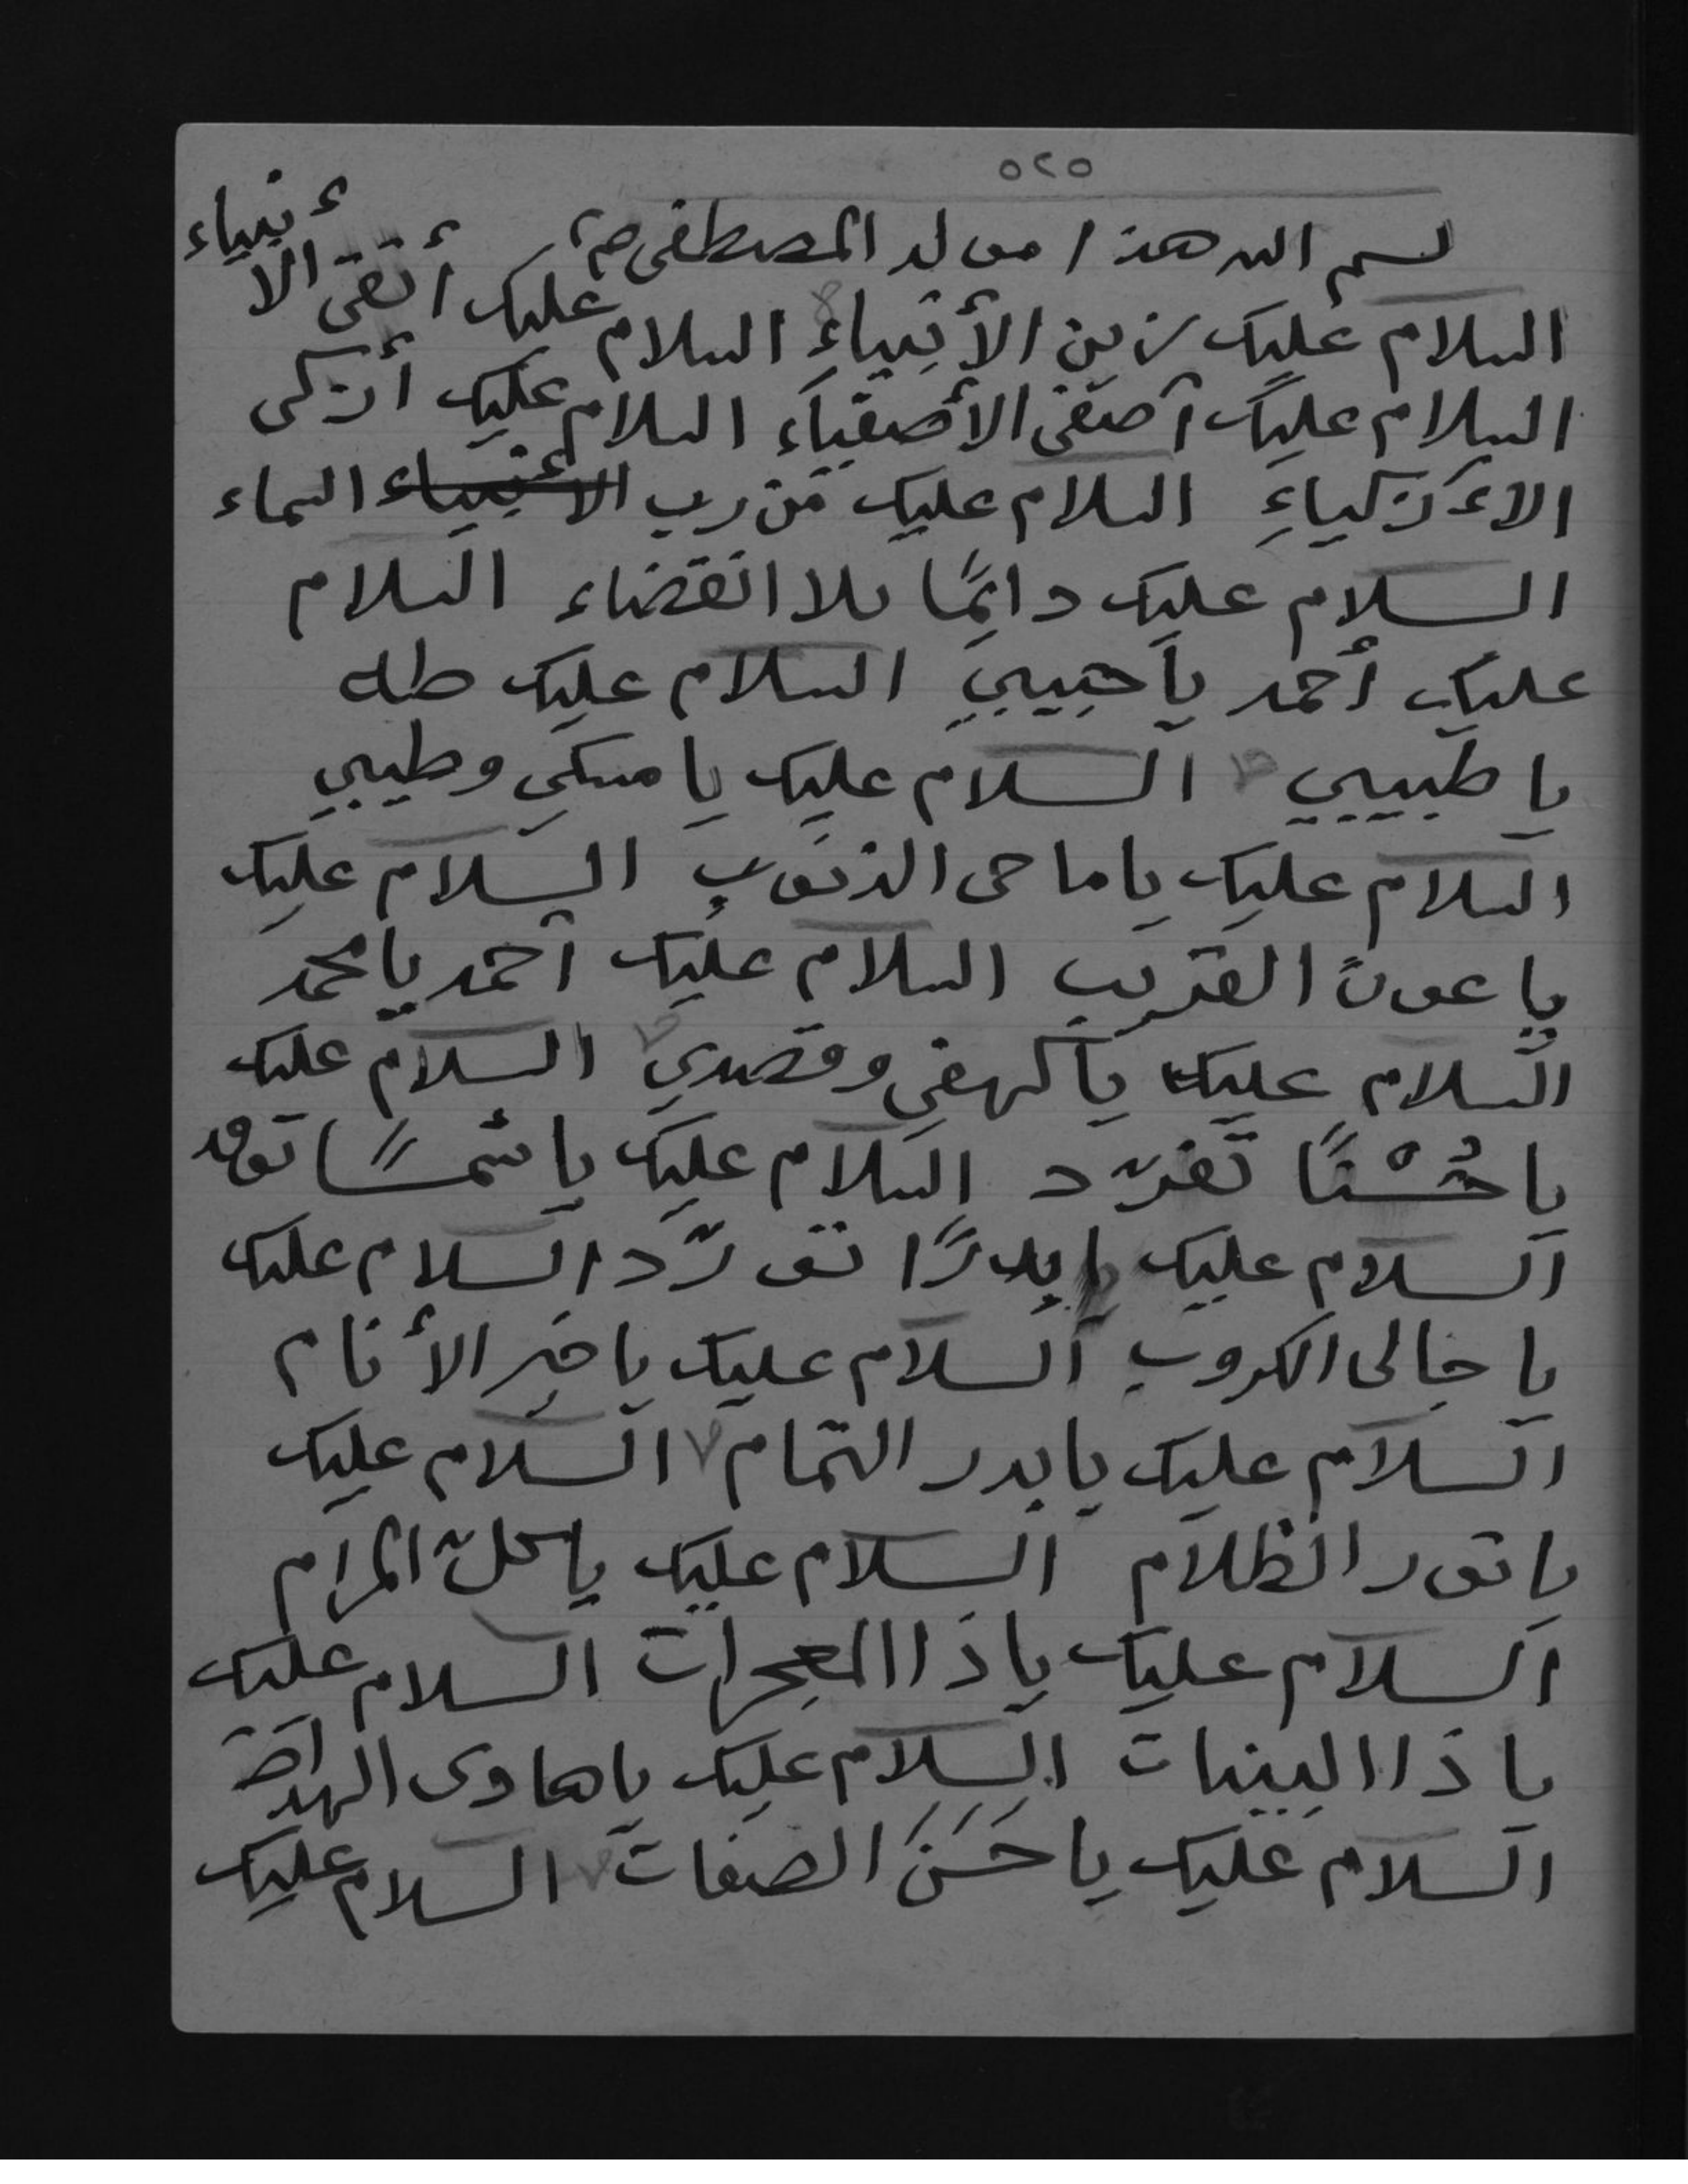 ٥٢٥
بسم الله هذا مولد المصطفى ص٢
السلام عليك زين الأنبياءِ السلام عليك أتقى الأنبياء
السلام عليك أصفى الأصفياء السلام عليك أزكى
الأزكياءِ السلام عليك من رب الأنبياء السماء
السلام عليك دائمًا بلا انقضاء السلام
عليك أحمد يا حبيبي السلام عليك طه
يا طبيبي السلام عليك يا مسكي وطيبي
السلام عليك يا ماحى الذنوبِ السلام عليك
يا عونَ الغريب السلام عليك أحمد يا محمد
السلام عليك يا كهفي وقصدي السلام عليك
يا حُسْنًا تفرّد السلام عليك يا شمسًا توقد
السلام عليك يا بدرًا تورّد السلام عليك
يا جالى الكروب السلام عليك يا خير الأنام
السلام عليك يا بدر التمام السلام عليك
يا نور الظلام السلام عليك يا كلّ المرام
السلام عليك يا ذا المعجزات السلام عليك
يا ذا البينات السلام عليك يا هادى الهداة
السلام عليك يا حَسَنَ الصفات السلام عليك